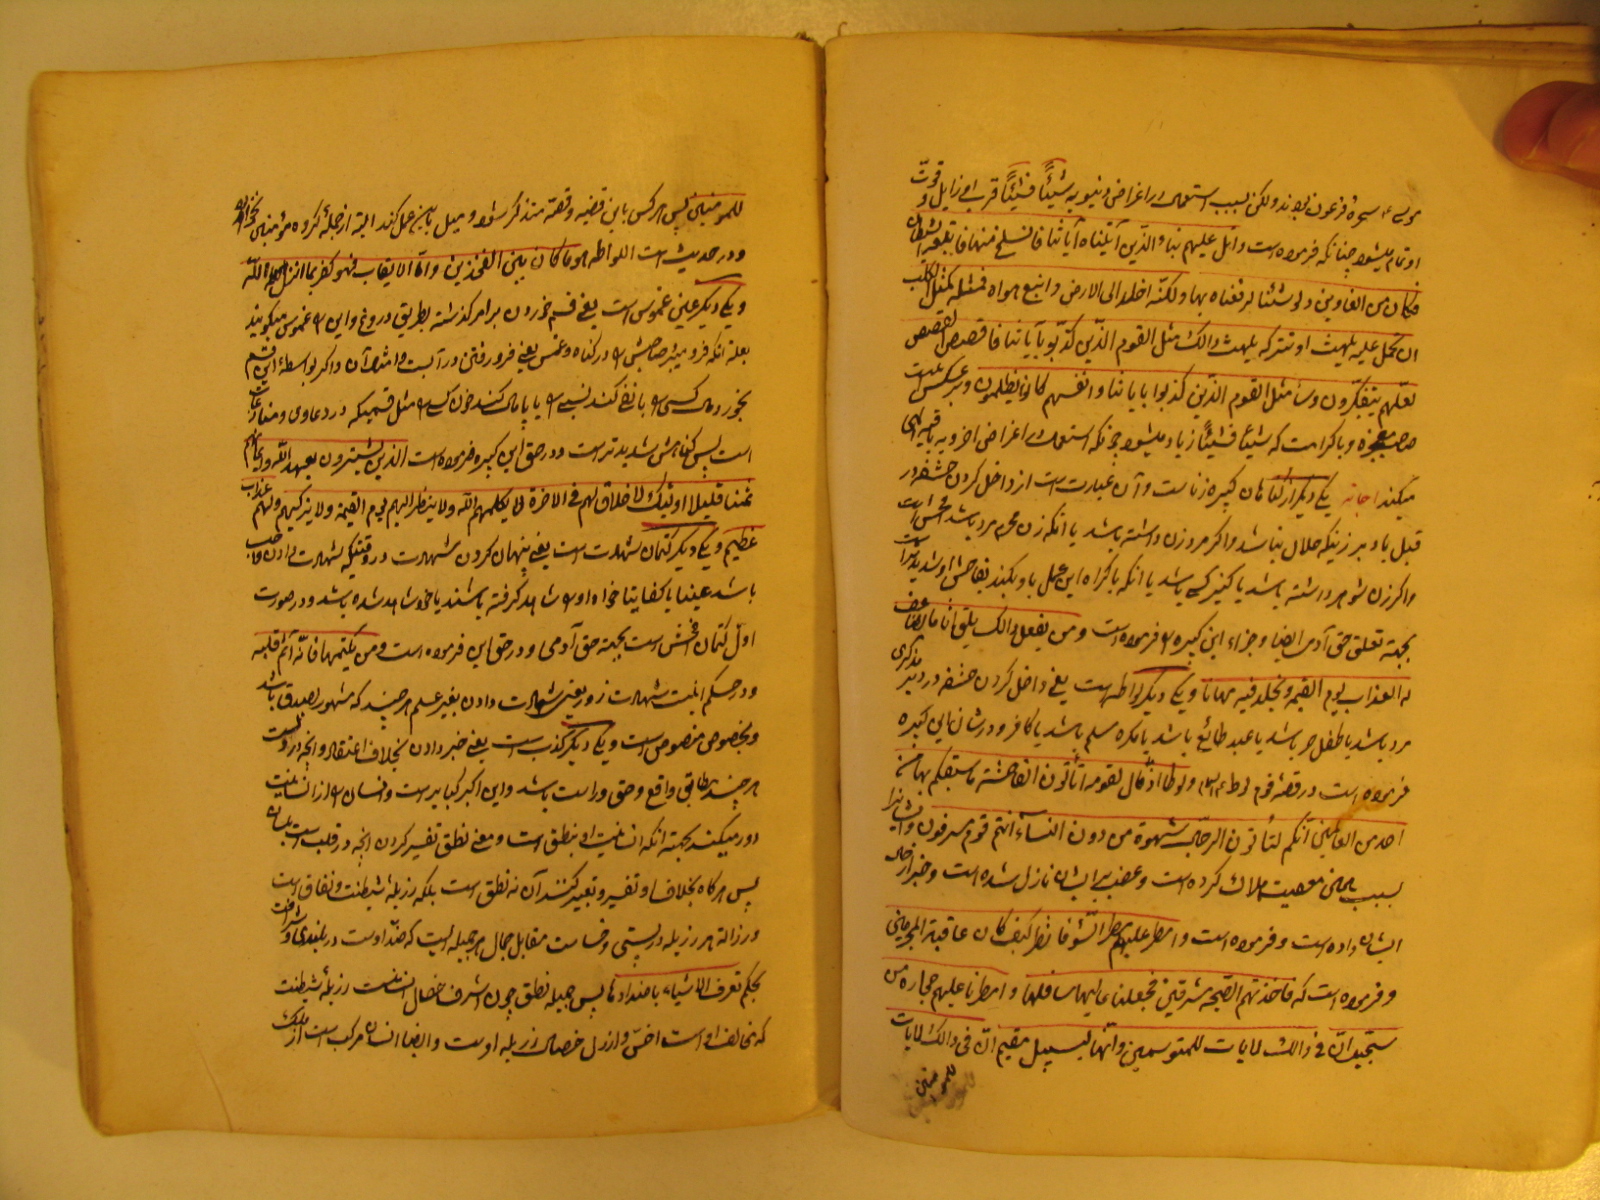 موسی ع سحره فرعون بودند ولکن بسبب استعمال در اغراض دنیویه شیئاً فشیئاً قرب او زایل و قوت
او تمام میشود چنانکه فرموده است واتل علیهم نبأ الذین آتیناه آیاتنا فانسلخ منها فاتبعه الشیطان
فکان من الغاوین ولو شئنا لرفعناه بها ولکنه اخلد الی الارض واتبع هواه فمثله کمثل الکلب
ان تحمل علیه یلهث او تترکه یلهث ذالک مثل القوم الذین کذبوا بآیاتنا فاقصص القصص
لعلهم یتفکرون وساء مثل القوم الذین کذبوا بایاتنا وانفسهم کانوا یظلمون و بر عکس است
صاحب معجزه و با کرامت که شیئاً فشیئاً زیاد میشود چونکه استعمال در اغراض اخرویه باقیه الهی
میکند یکی دیگر از گناهان کبیره زنا است و آن عبارت است از داخل کردن حشفه در
قبل یا دبر زنیکه حلال نباشد و اگر مرد زن داشته باشد یا آنکه زن محرم مرد باشد افحش است
و اگر زن شوهر داشته باشد یا کنیز کسی باشد یا آنکه باکراه این عمل با و بکند فاحش او شدیدتر است
بجهته تعلق حق آدمی ایضا و جزاء این کبیره فرموده است و من یفعل ذالک یلق اثاما یضاعف
له العذاب یوم القیمه ویخلد فیه مهانا و یکی دیگر لواطه است یعنی داخل کردن حشفه در دبر مذکری
مرد باشد یا طفل حر باشد یا عبد طائع باشد یا مکره مسلم باشد یا کافر و در شان این کبیره
فرموده است در قصه قوم لوط ولوطا اذ قال لقومه اتأتون الفاحشة ما سبقکم بها من
احد من العالمین انکم لتأتون الرجال شهوة من دون النساء انتم قوم مسرفون و ایشانرا
بسبب همین معصیت هلاک کرده است و عضب بر ایشان نازل شده است و خبر از حال
ایشان داده است و فرموده است وامطر علیهم مطر السوء فانظر کیف کان عاقبة المجرمین
و فرموده است که فاخذتهم الصیحه مشرقین فجعلنا عالیها سافلها وامطرنا علیهم حجارة من
سجیل ان فی ذالک لایات للمتوسمین وانها لبسبیل مقیم ان فی ذالک لایات
للمومنین
للمومنین پس هر کس باین قضیه و قصه متذکر نشود و میل باین عمل کند البته از جمله گروه مؤمنین نخواهد
و در حدیث است اللواطه هو ما کان بین الفخذین واما الایقاب فهو کفر بما انزل الله
و یکی دیگر یمین غموس است یعنی قسم خوردن بر امر گذشته بطریق دروغ و این را غموس میگویند
بعلة آنکه فرو میبرد صاحبش را در گناه و غمس یعنی فرو رفتن در آبست و امثال آن و اگر بواسطه این قسم
بخورد مال کسی را یا نفی کند نسبی را یا پامال کند خون کسی را مثل قسمیکه در دعاوی و منازعات
است پس گناهش شدیدتر است و در حق این کبیره فرموده است الذین یشترون بعهد الله وایمانهم
ثمنا قلیلا اولئک لا خلاق لهم فی الاخرة ولا یکلمهم الله ولا ینظر الیهم یوم القیمة ولا یزکیهم ولهم عذاب
عظیم و یکی دیگر کتمان شهادت است یعنی پنهان کردن شهادت در وقتیکه شهادت دادن واجب
باشد عینا یا کفایتا خواه او را شاهد گرفته باشند یا خود شاهد شده باشد و در صورت
اول کتمان افحش است بجهته حق آدمی و در حق این فرموده است ومن یکتمها فانه آثم قلبه
و در حکم اینست شهادت زور یعنی شهادت دادن بغیر علم هر چند که مشهور بصدق باشد
و بخصوص منصوص است و یکی دیگر کذب است یعنی خبر دادن بخلاف اعتقاد و آنچه در دلست
هر چند مطابق واقع و حق و راست باشد و این اکبر کبایر است و انسان را از انسانیت
دور میکند بجهته آنکه انسانیت او بنطق است و معنی نطق تفسیر کردن آنچه در قلب است بلسان
پس هر گاه بخلاف او تفسیر و تعبیر کند آن نه نطق است بلکه رزیله شیطنت و نفاق است
و رزاله هر رزیله در پستی و خساست مقابل جمال هر جمیله ایست که ضد اوست در بلندی و شرافت
بحکم تعرف الاشیاء باضدادها پس جمیله نطق چون اشرف خصال انسانست رزیله شیطنت
که مخالف او است اخس و ارزل خصال رزیله اوست و ایضا انسان مرکب است از ملک